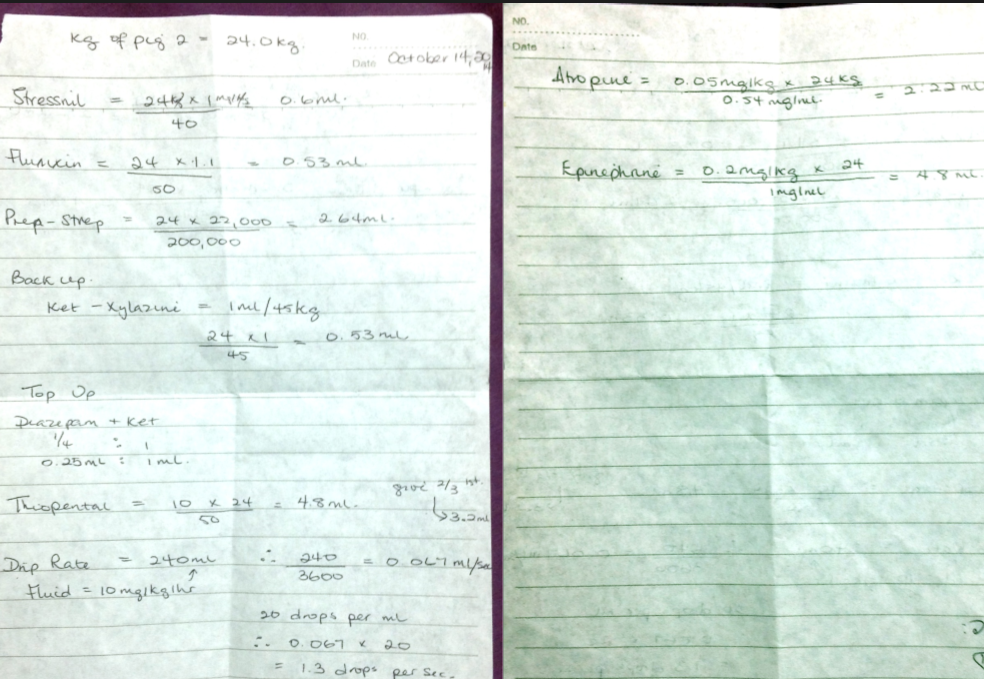 Kg of pig 2 = 24.0kg.
NO.
Date October 14, 20
Stressnil = 24 x 1 0.6ml.
40
Flunixin = 24 x 1.1 = 0.53 ml.
50
Prep-Strep = 24 x 22,000 = 2.64ml.
200,000
Back up.
Ket - Xylazine = 1ml/45kg
24 x 1 = 0.53ml.
45
Top Up
Diazepam + Ket
1/4 : 1
0.25ml : 1ml.
Thiopental = 10 x 24 = 4.8ml.
50
give 2/3 1st.
↳3.2ml
Drip Rate = 240ml ∴ 240 = 0.067 ml/sec
3600
Fluid = 10mg/kg/hr
20 drops per ml
∴ 0.067 x 20
= 1.3 drops per sec.
NO.
Date
Atropine = 0.05mg/kg x 24kg = 2.22 ml
0.54 mg/ml.
Epinephrine = 0.2mg/kg x 24 = 4.8 ml.
1mg/ml